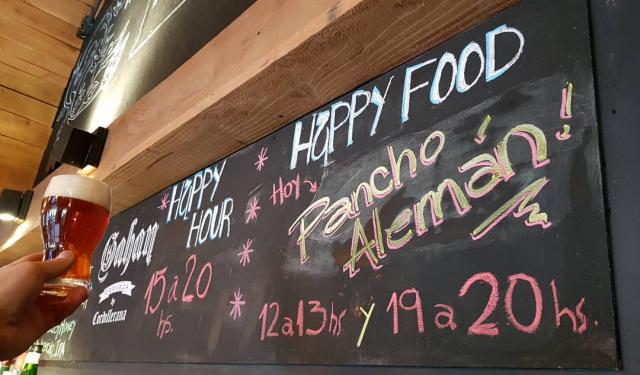 HAPPY
HOUR
15 a 20
hs.
Graham
CERVEZA
by
Cordillerana
HAPPY FOOD
HOY
Pancho
Alemán!
12 a 13 hs y 19 a 20 hs.